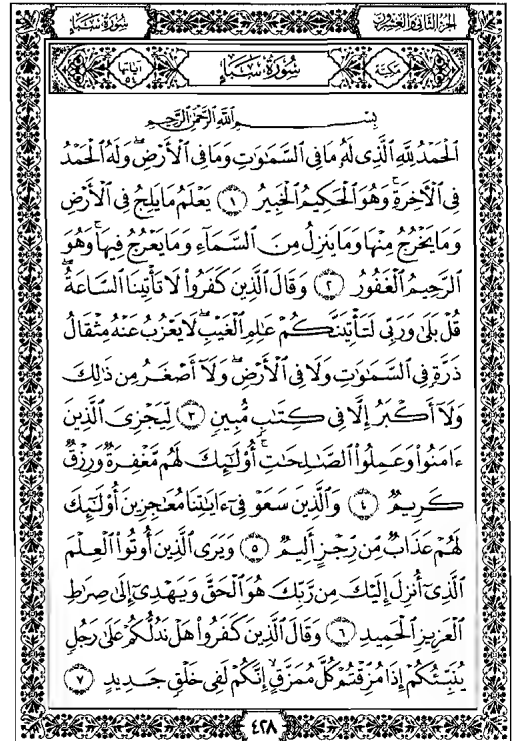 الجزء الثاني والعشرون
سُورَةُ سَبَإٍ
مكية
سُورَةُ سَبَإٍ
آياتها ٥٤
بِسْمِ ٱللَّهِ ٱلرَّحْمَٰنِ ٱلرَّحِيمِ
ٱلْحَمْدُ لِلَّهِ ٱلَّذِى لَهُۥ مَا فِى ٱلسَّمَٰوَٰتِ وَمَا فِى ٱلْأَرْضِ ۖ وَلَهُ ٱلْحَمْدُ
فِى ٱلْأَخِرَةِ ۚ وَهُوَ ٱلْحَكِيمُ ٱلْخَبِيرُ ۝١ يَعْلَمُ مَا يَلِجُ فِى ٱلْأَرْضِ
وَمَا يَخْرُجُ مِنْهَا وَمَا يَنزِلُ مِنَ ٱلسَّمَآءِ وَمَا يَعْرُجُ فِيهَا ۚ وَهُوَ
ٱلرَّحِيمُ ٱلْغَفُورُ ۝٢ وَقَالَ ٱلَّذِينَ كَفَرُوا۟ لَا تَأْتِينَا ٱلسَّاعَةُ ۖ
قُلْ بَلَىٰ وَرَبِّى لَتَأْتِيَنَّكُمْ عَٰلِمِ ٱلْغَيْبِ ۖ لَا يَعْزُبُ عَنْهُ مِثْقَالُ
ذَرَّةٍ فِى ٱلسَّمَٰوَٰتِ وَلَا فِى ٱلْأَرْضِ ۖ وَلَآ أَصْغَرُ مِن ذَٰلِكَ
وَلَآ أَكْبَرُ إِلَّا فِى كِتَٰبٍ مُّبِينٍ ۝٣ لِّيَجْزِىَ ٱلَّذِينَ
ءَامَنُوا۟ وَعَمِلُوا۟ ٱلصَّٰلِحَٰتِ ۚ أُو۟لَٰٓئِكَ لَهُم مَّغْفِرَةٌ وَرِزْقٌ
كَرِيمٌ ۝٤ وَٱلَّذِينَ سَعَوْ فِىٓ ءَايَٰتِنَا مُعَٰجِزِينَ أُو۟لَٰٓئِكَ
لَهُمْ عَذَابٌ مِّن رِّجْزٍ أَلِيمٌ ۝٥ وَيَرَى ٱلَّذِينَ أُوتُوا۟ ٱلْعِلْمَ
ٱلَّذِىٓ أُنزِلَ إِلَيْكَ مِن رَّبِّكَ هُوَ ٱلْحَقَّ وَيَهْدِىٓ إِلَىٰ صِرَٰطِ
ٱلْعَزِيزِ ٱلْحَمِيدِ ۝٦ وَقَالَ ٱلَّذِينَ كَفَرُوا۟ هَلْ نَدُلُّكُمْ عَلَىٰ رَجُلٍ
يُنَبِّئُكُمْ إِذَا مُزِّقْتُمْ كُلَّ مُمَزَّقٍ إِنَّكُمْ لَفِى خَلْقٍ جَدِيدٍ ۝٧
٤٢٨